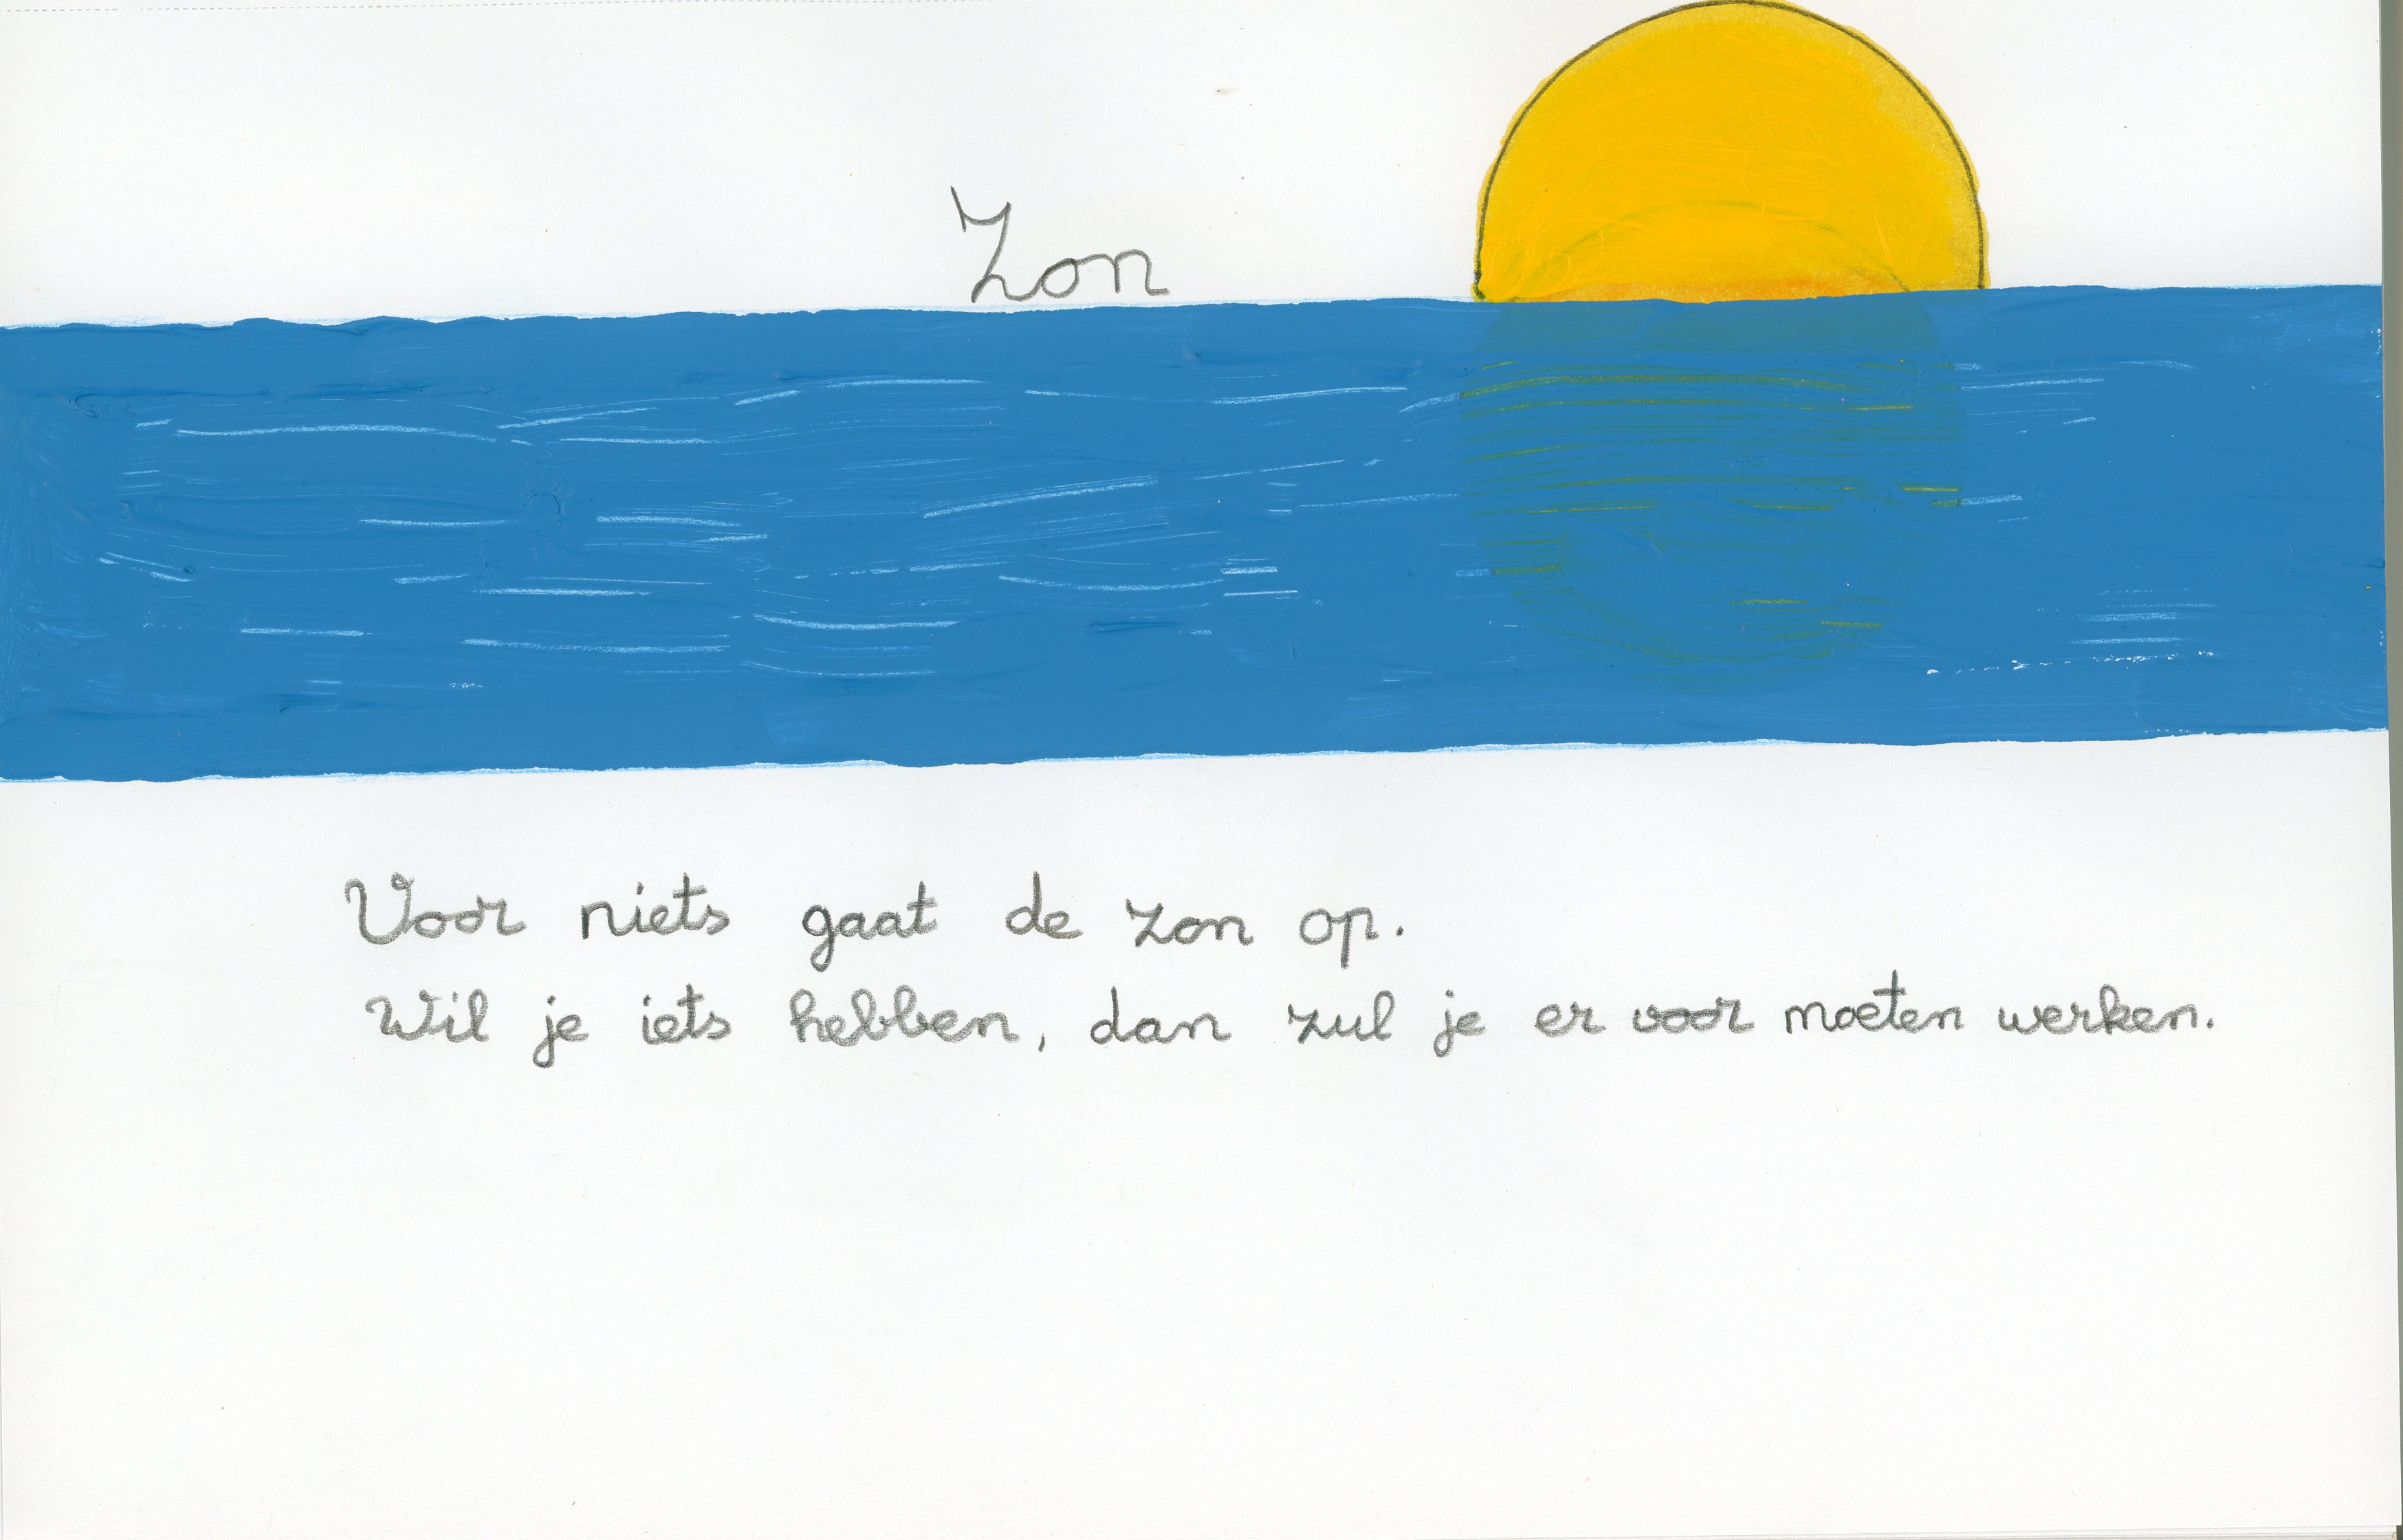 Zon
Voor niets gaat de zon op.
Wil je iets hebben, dan zul je er voor moeten werken.